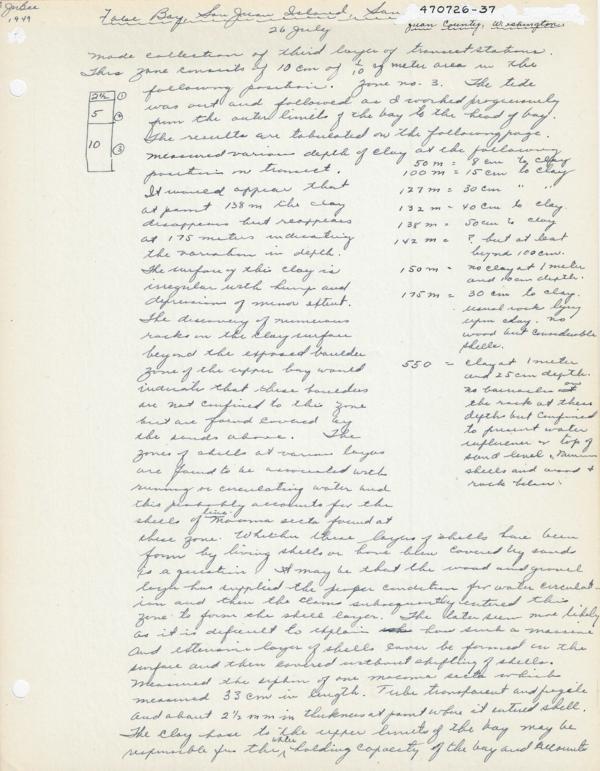 McBee
1949
470726-37
False Bay, San Juan Island, San Juan County, Washington
26 July
Made collection of third layer of transect stations.
This zone consists of 10 cm of 1/10 sq meter area in the
following position. Zone no. 3. The tide
was out and followed as I worked progressively
from the outer limits of the bay to the head of bay.
The results are tabulated on the following page.
2½ ①
5 ②
10 ③
Measured various depth of clay at the following
positions on transect.
50 m = 8 cm to clay
100 m = 15 cm to clay
127 m = 30 cm " "
132 m = 40 cm to clay.
138 m = 50 cm to clay
142 m = ? but at least
beyond 100 cm.
150 m = no clay at 1 meter
and 10 cm depth.
175 m = 30 cm to clay.
usual rock lying
upon clay. no
wood but considerable
shells.
550 = clay at 1 meter
and 25 cm depth.
no barnacles on
the rock at these
depths but confined
to present water
influence or top of
sand level,
shells and wood +
rock below.
It would appear that
at point 138 m the clay
disappears but reappears
at 175 meters indicating
the variation in depth.
The surface of this clay is
irregular with hump and
depressions of minor extent.
The discovery of numerous
rocks on the clay surface
beyond the exposed boulder
zone of the upper bay would
indicate that these boulders
are not confined to this zone
but are found covered by
the sands above. The
zones of shells at various layers
are found to be associated with
running or circulating water and
this probably accounts for the
shells of live Macoma secta found at
these zone. Whether these layers of shells have been
form by living shells or have been covered by sands
is a question. It may be that the wood and gravel
layer has supplied the proper condition for water circulat-
ion and then the clams subsequently entered this
zone to form the shell layer. The later seem more likely
as it is difficult to explain how such a massive
and extensive layer of shells could be formed on the
surface and then covered without shifting of shells.
Measured the siphon of one macoma secta which
measured 33 cm in length. Tube transparent and fragile
and about 2½ mm in thickness at point where it entered shell.
The clay base to the upper limits of the bay may be
responsible for the water holding capacity of the bay and accounts